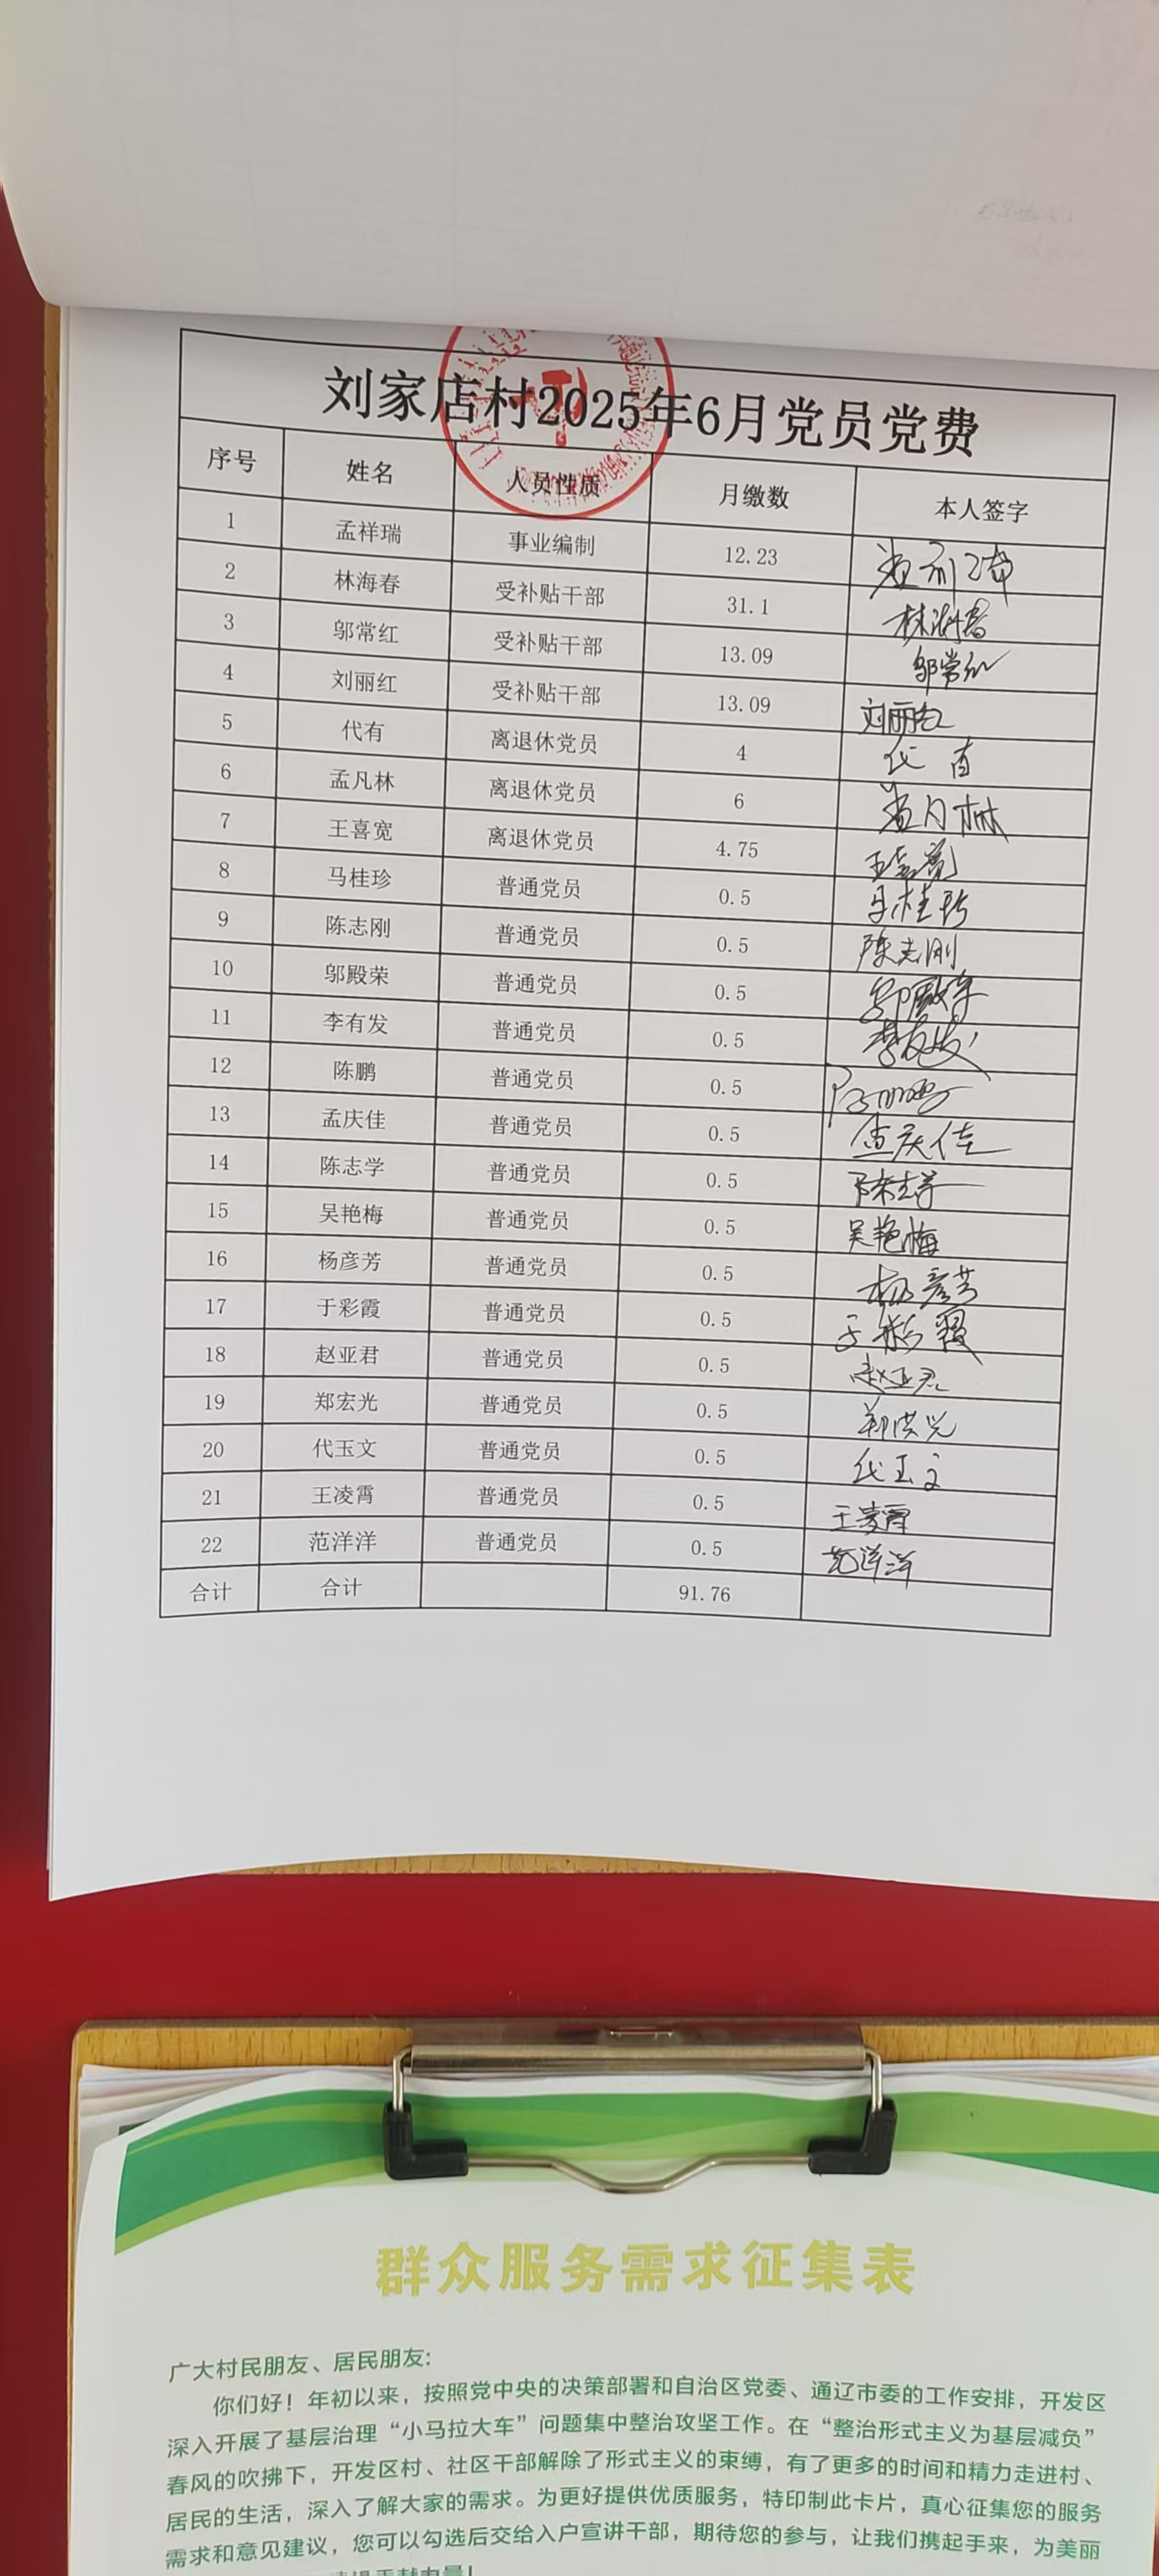 刘家店村2025年6月党员党费
序号 姓名 人员性质 月缴数 本人签字
1 孟祥瑞 事业编制 12.23
2 林海春 受补贴干部 31.1 林海春
3 邬常红 受补贴干部 13.09 邬常红
4 刘丽红 受补贴干部 13.09 刘丽红
5 代有 离退休党员 4 代有
6 孟凡林 离退休党员 6 孟凡林
7 王喜宽 离退休党员 4.75 王喜宽
8 马桂珍 普通党员 0.5 马桂珍
9 陈志刚 普通党员 0.5 陈志刚
10 邬殿荣 普通党员 0.5 邬殿荣
11 李有发 普通党员 0.5 李有发
12 陈鹏 普通党员 0.5
13 孟庆佳 普通党员 0.5 孟庆佳
14 陈志学 普通党员 0.5 陈志学
15 吴艳梅 普通党员 0.5 吴艳梅
16 杨彦芳 普通党员 0.5 杨彦芳
17 于彩霞 普通党员 0.5 于彩霞
18 赵亚君 普通党员 0.5 赵亚君
19 郑宏光 普通党员 0.5
20 代玉文 普通党员 0.5 代玉文
21 王凌霄 普通党员 0.5 王凌霄
22 范洋洋 普通党员 0.5 范洋洋
合计 合计 91.76
群众服务需求征集表
广大村民朋友、居民朋友:
你们好！年初以来，按照党中央的决策部署和自治区党委、通辽市委的工作安排，开发区
深入开展了基层治理“小马拉大车”问题集中整治攻坚工作。在“整治形式主义为基层减负”
春风的吹拂下，开发区村、社区干部解除了形式主义的束缚，有了更多的时间和精力走进村、
居民的生活，深入了解大家的需求。为更好提供优质服务，特印制此卡片，真心征集您的服务
需求和意见建议，您可以勾选后交给入户宣讲干部，期待您的参与，让我们携起手来，为美丽